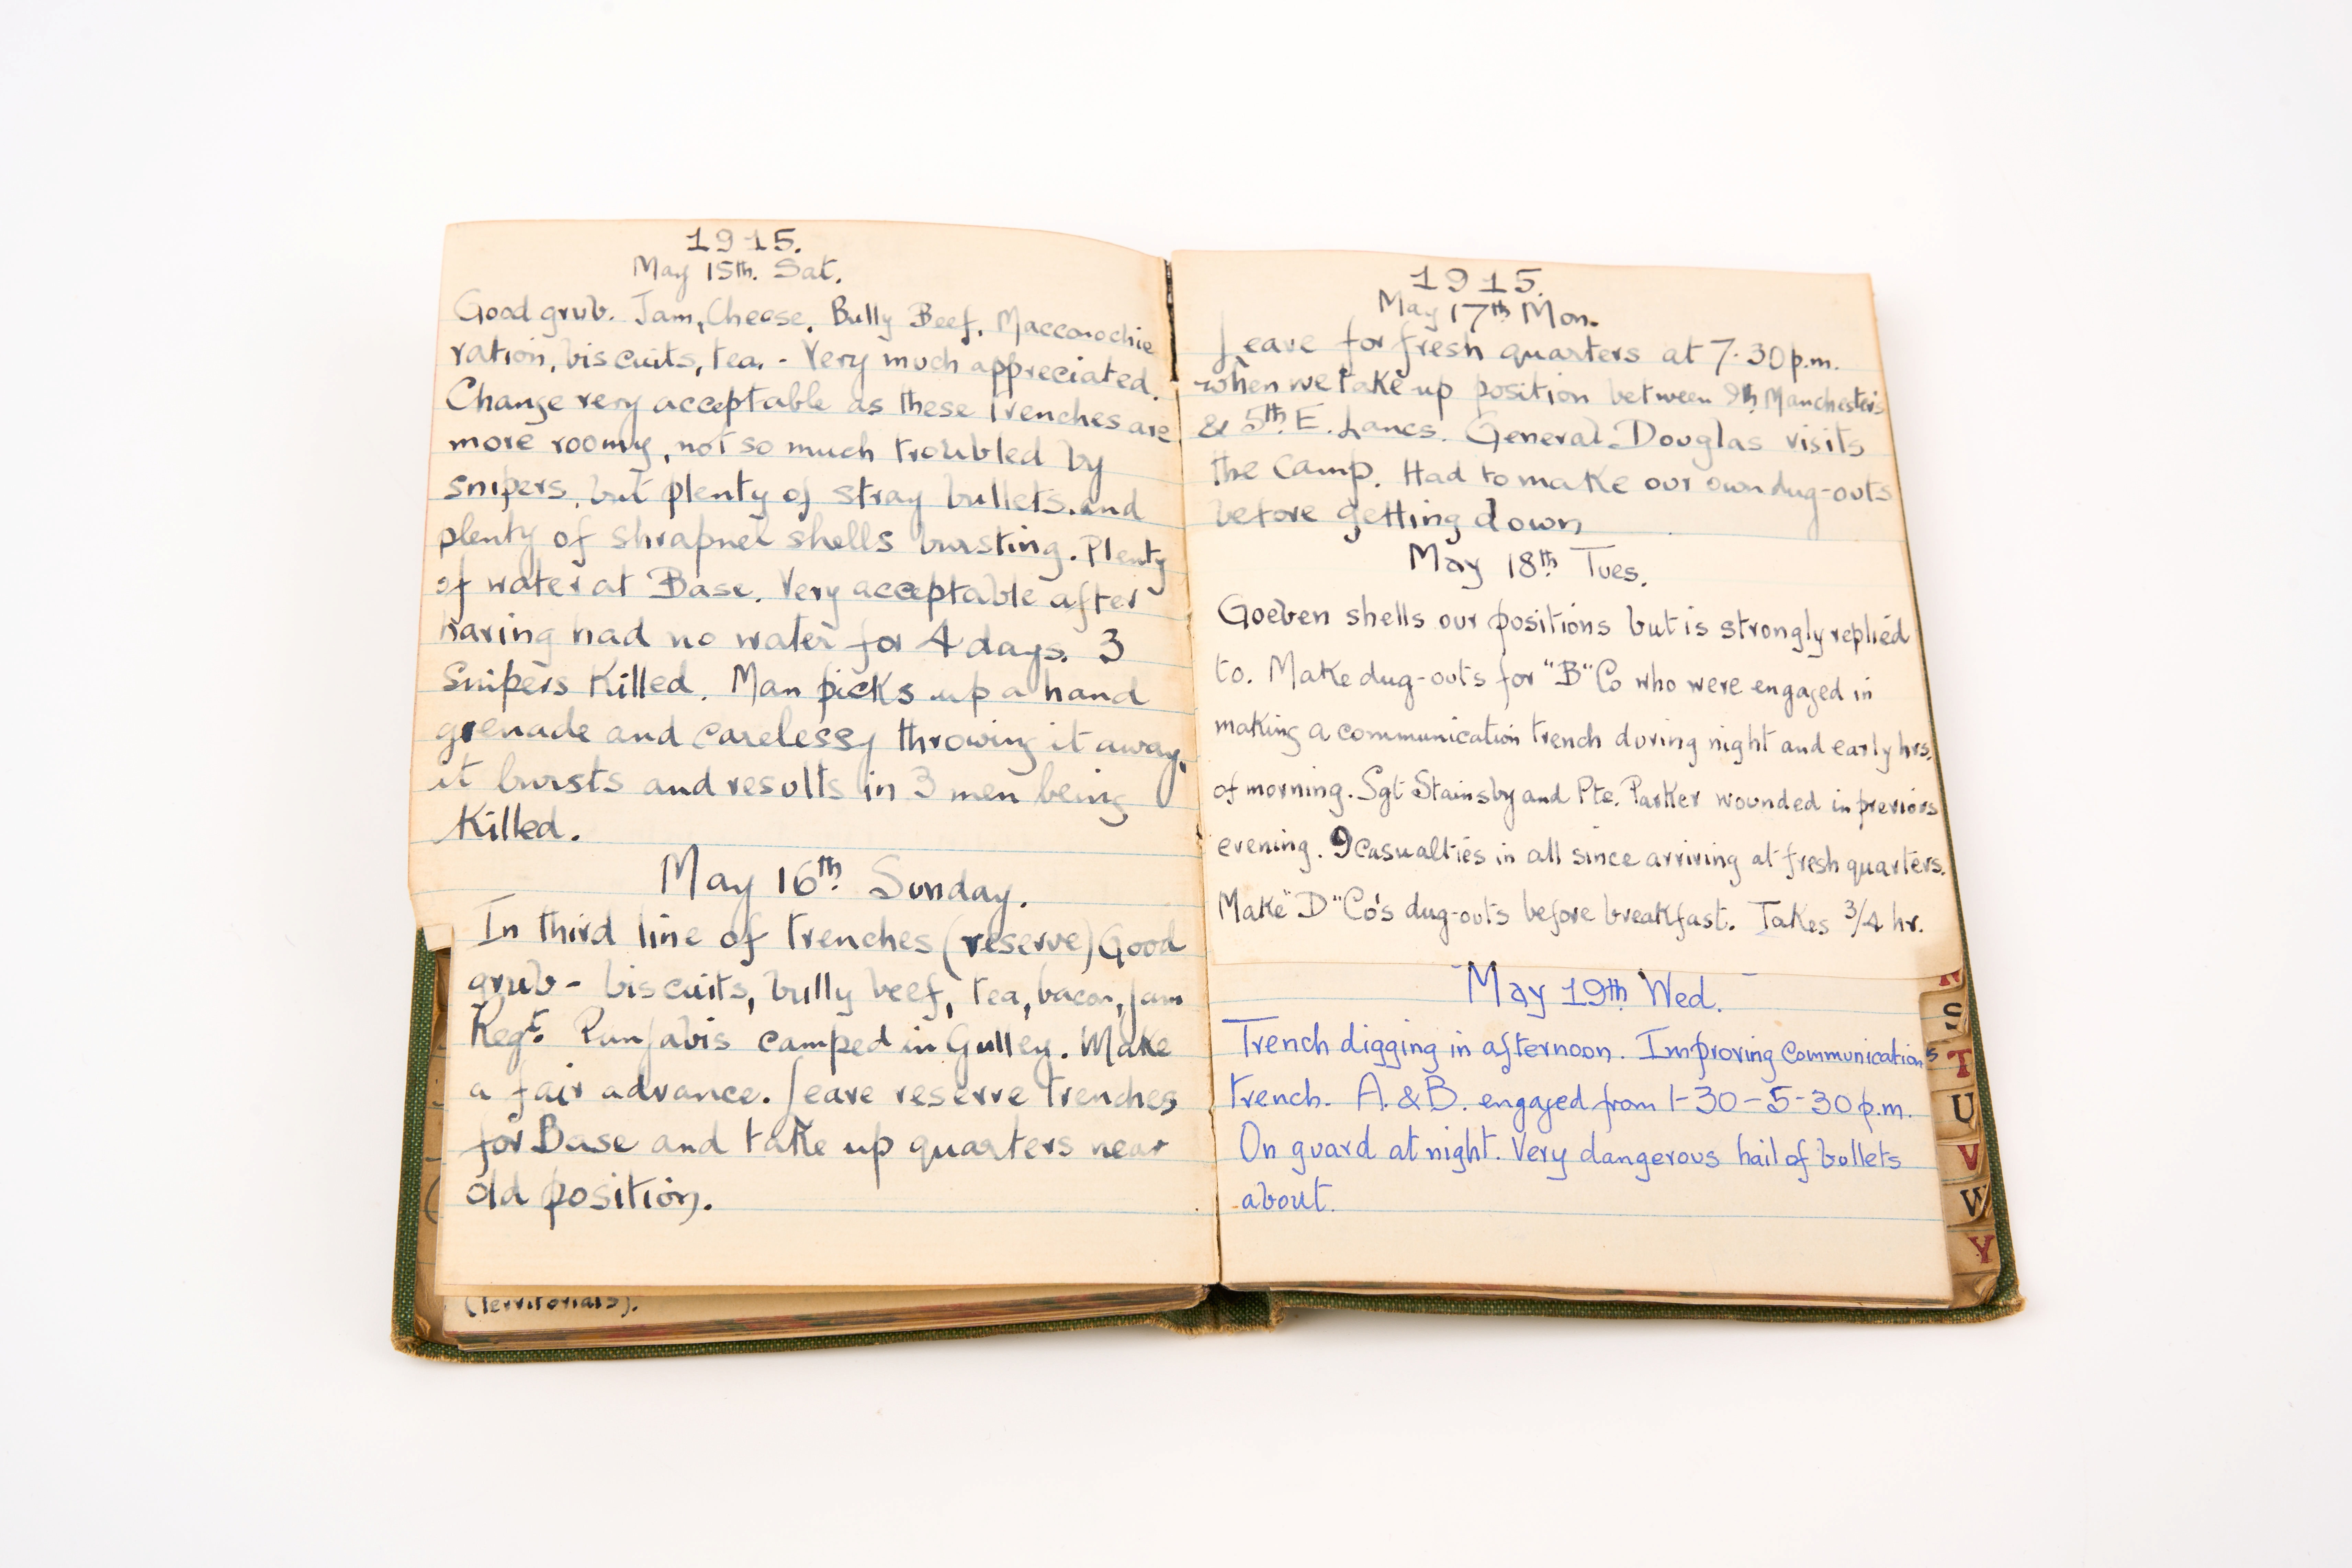 1915.
May 15th. Sat.
Good grub. Jam, Cheese, Bully Beef, Macconochie
ration, biscuits, tea. - Very much appreciated.
Change very acceptable as these trenches are
more roomy, not so much troubled by
snipers, but plenty of stray bullets. and
plenty of shrapnel shells bursting. Plenty
of water at Base. Very acceptable after
having had no water for 4 days. 3
Snipers Killed. Man picks up a hand
grenade and carelessy throwing it away,
it bursts and results in 3 men being
Killed.
May 16th Sunday.
In third line of trenches (reserve) Good
grub - biscuits, bully beef, tea, bacon, jam
Regt. Punjabis camped in Gulley. Make
a fair advance. Leave reserve trenches
for Base and take up quarters near
old position.
(Territorials).
1915.
May 17th Mon.
Leave for fresh quarters at 7.30 p.m.
when we take up position between 9th Manchesters
& 5th E. Lancs. General Douglas visits
the Camp. Had to make our own dug-outs
before getting down
May 18th Tues.
Goeben shells our positions but is strongly replied
to. Make dug-outs for "B" Co who were engaged in
making a communication trench during night and early hrs.
of morning. Sgt Stainsby and Pte. Parker wounded in previors
evening. 9 casualties in all since arriving at fresh quarters.
Make "D" Co's dug-outs before breakfast. Takes 3/4 hr.
May 19th Wed.
Trench digging in afternoon. Improving communications
trench. A. & B. engaged from 1-30 - 5-30 p.m.
On guard at night. Very dangerous hail of bullets
about.
S
T
U
V
W
Y